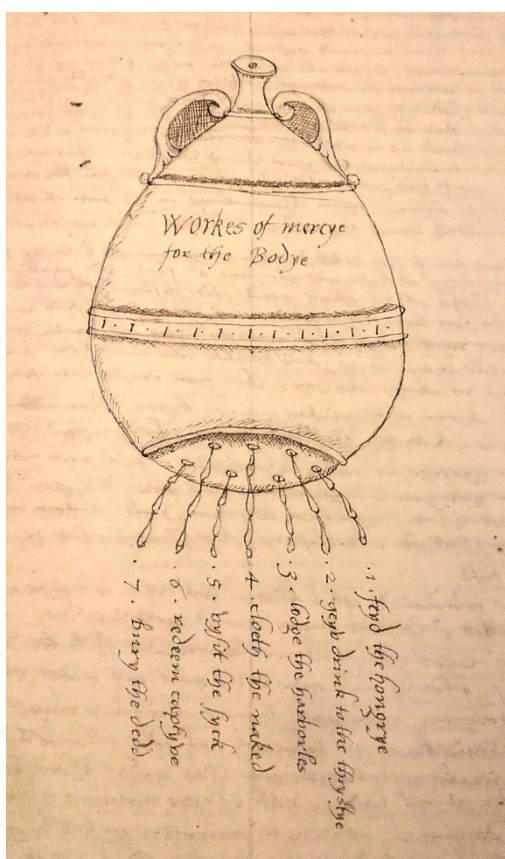 Workes of mercye
for the Bodye
.1. feyd the hongrye
.2. geyb drink to the thrystye
.3. lodge the harborles
.4. cloeth the naked
.5. bysit the syck
.6. redeem captybe
.7. bury the dedd